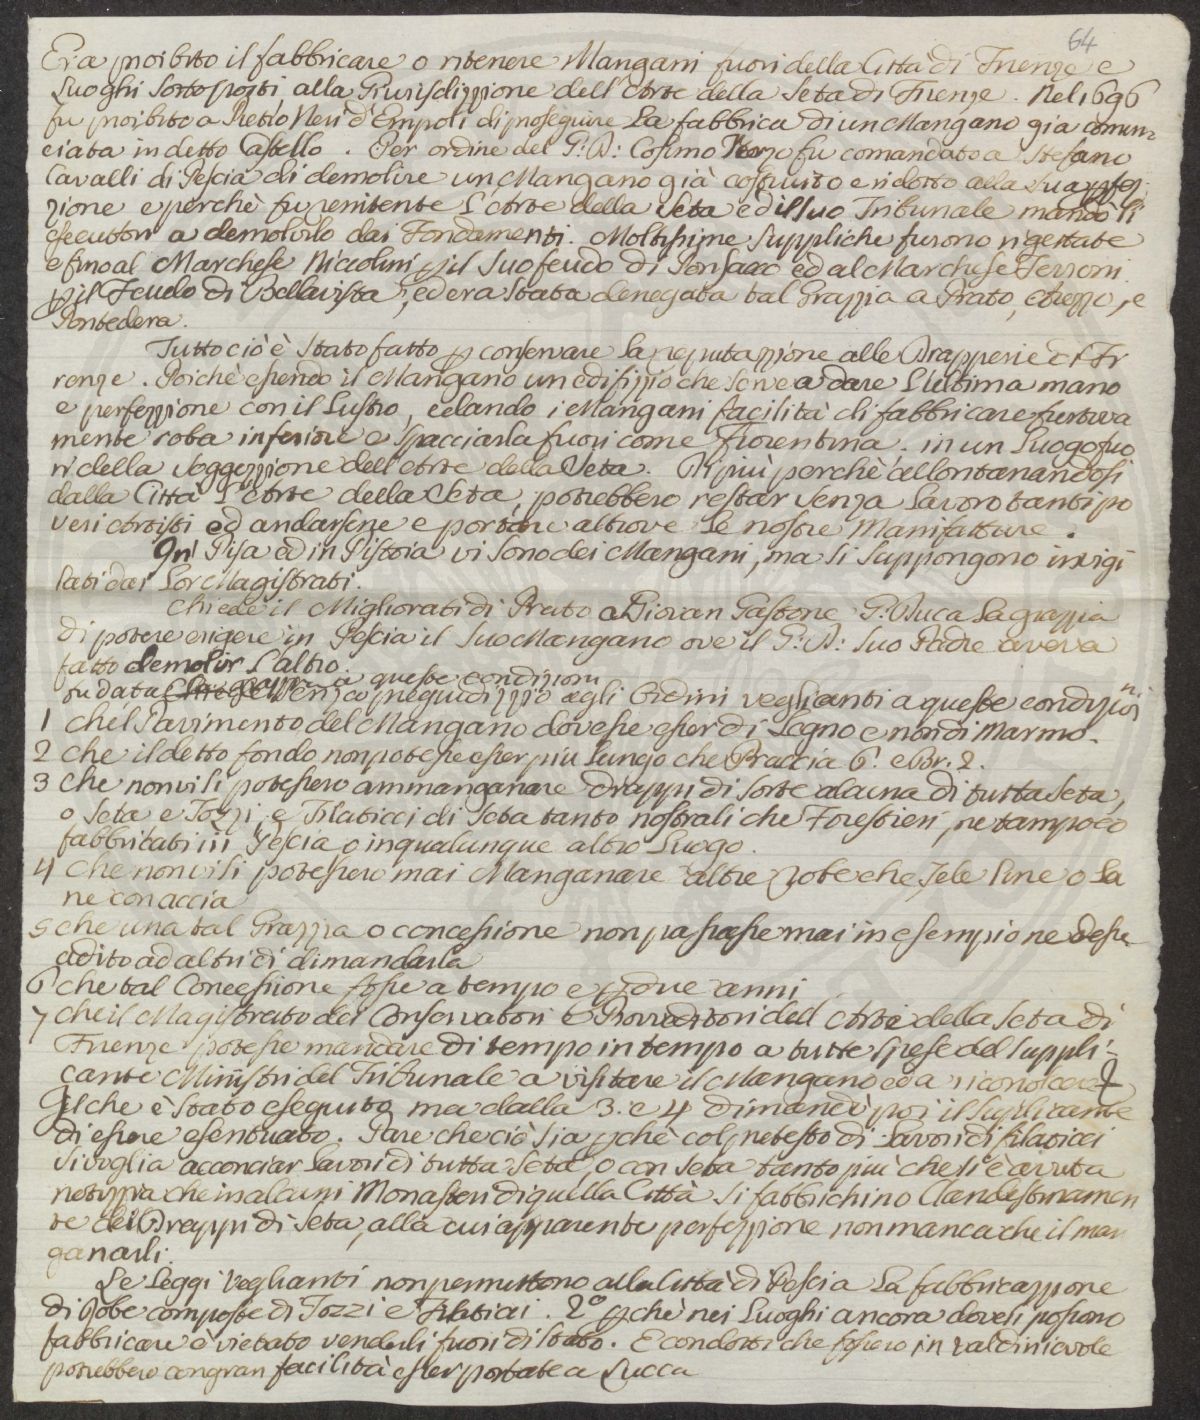 64
Era proibito il fabbricare o ritenere Mangani fuori della Città di Firenze e
Luoghi sottoposti alla Giurisdizzione dell'Arte della Seta di Firenze. Nel 1696
fu proibito a Pietro Neri d'Empoli di proseguire La fabbrica di un Mangano già comin=
ciata in detto Castello. Per ordine del G: D: Cosimo Terzo fu comandato a Stefano
Cavalli di Pescia di demolire un Mangano già costruito e ridotto alla sua perfez=
zione e perchè fu renitente L'Arte della Seta ed il suo Tribunale mandò li
esecutori a demolirlo dai Fondamenti. Moltissime Suppliche furono rigettate
e fino al Marchese Niccolini p il suo feudo di Ponsacco ed al Marchese Ferroni
p il Feudo di Bellavista, ed era stata denegata tal Grazzia a Prato, Arezzo, e
Pontedera.
Tutto ciò è stato fatto p conservare la reputazzione alle Drapperie di Fi
renze. Poichè essendo il Mangano un edifizzio che serve a dare L'ultima mano
e perfezzione con il Lustro, e dando i Mangani facilità di fabbricare furtiva
mente roba inferiore e spacciarla fuori come fiorentina. in un Luogo fuo
ri della soggezzione dell'Arte della Seta. Di più perchè allontanandosi
dalla Città L'Arte della Seta, potrebbero restar senza Lavoro tanti po
veri Artisti ed andarsene e portare altrove le nostre Manifatture.
In Pisa ed in Pistoia vi sono dei Mangani, ma si suppongono invigi
lati dai Lor Magistrati.
Chiede il Migliorati di Prato a Giovan Gastone G. Duca La grazzia
di potere erigere in Pescia il suo Mangano ove il G: D: suo Padre aveva
fatto demolir L'altro.
a queste condizioni
fu data senza pregiudizzio agli Ordini veglianti a queste condizioni
1 che l Pavimento del Mangano dovesse esser di Legno e non di Marmo.
2 che il detto fondo non potesse esser più Lungo che Braccia 6. e Br. 2.
3 che non vi si potessero ammanganare drappi di sorte alcuna di tutta seta,
o seta e Tozzi, e Filaticci di seta tanto nostrali che Forestieri, ne tampoco
fabbricati in Pescia o in qualunque altro Luogo.
4 che non vi si potessero mai Manganare altre Robe che Tele line o La
ne con accia
5 che una tal Grazzia o concessione non passasse mai in esempio ne desse
adito ad altri di dimandarla
6 che tal Concessione fosse a tempo e p due anni
7 che il Magistrato dei Conservatori e Provveditori dell'Arte della Seta di
Firenze potesse mandare di tempo in tempo a tutte spese del suppli=
cante Ministri del Tribunale a visitare il Mangano ed a riconoscere
Il che è stato eseguito, ma dalla 3. e 4 dimandò poi il Suplicante
di essere esentuato. Pare che ciò sia pchè col pretesto di Lavori di filaticci
si voglia acconciar Lavori di tutta seta, o con seta tanto più che si è avuta
notizzia che in alcuni Monasteri di quella Città si fabbrichino Clandestinamen
te dei Drappi di Seta, alla cui apparente perfezzione non manca che il man
ganarli.
Le Leggi Veglianti non permettono alla Città di Pescia La fabbricazzione
di Robe composte di Tozzi e Filaticci. 2º pchè nei Luoghi ancora dove si possono
fabbricare è vietato venderli fuori di stato. E condotti che fossero in valdinievole
potrebbero con gran facilità esser portate a Lucca